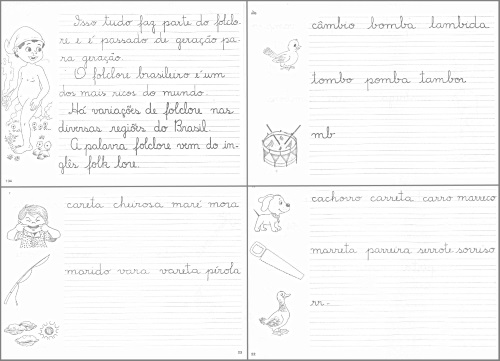 Isso tudo faz parte do folclo-
re e é passado de geração pa-
ra geração.
O folclore brasileiro é um
dos mais ricos do mundo.
Há variações de folclore nas
diversas regiões do Brasil.
A palavra folclore vem do in-
glês folk lore.
câmbio bomba lambida
tombo pomba tambor
mb
careta cheirosa maré mora
marido vara vareta pérola
cachorro carreta carro marreco
marreta parreira serrote sorriso
rr-